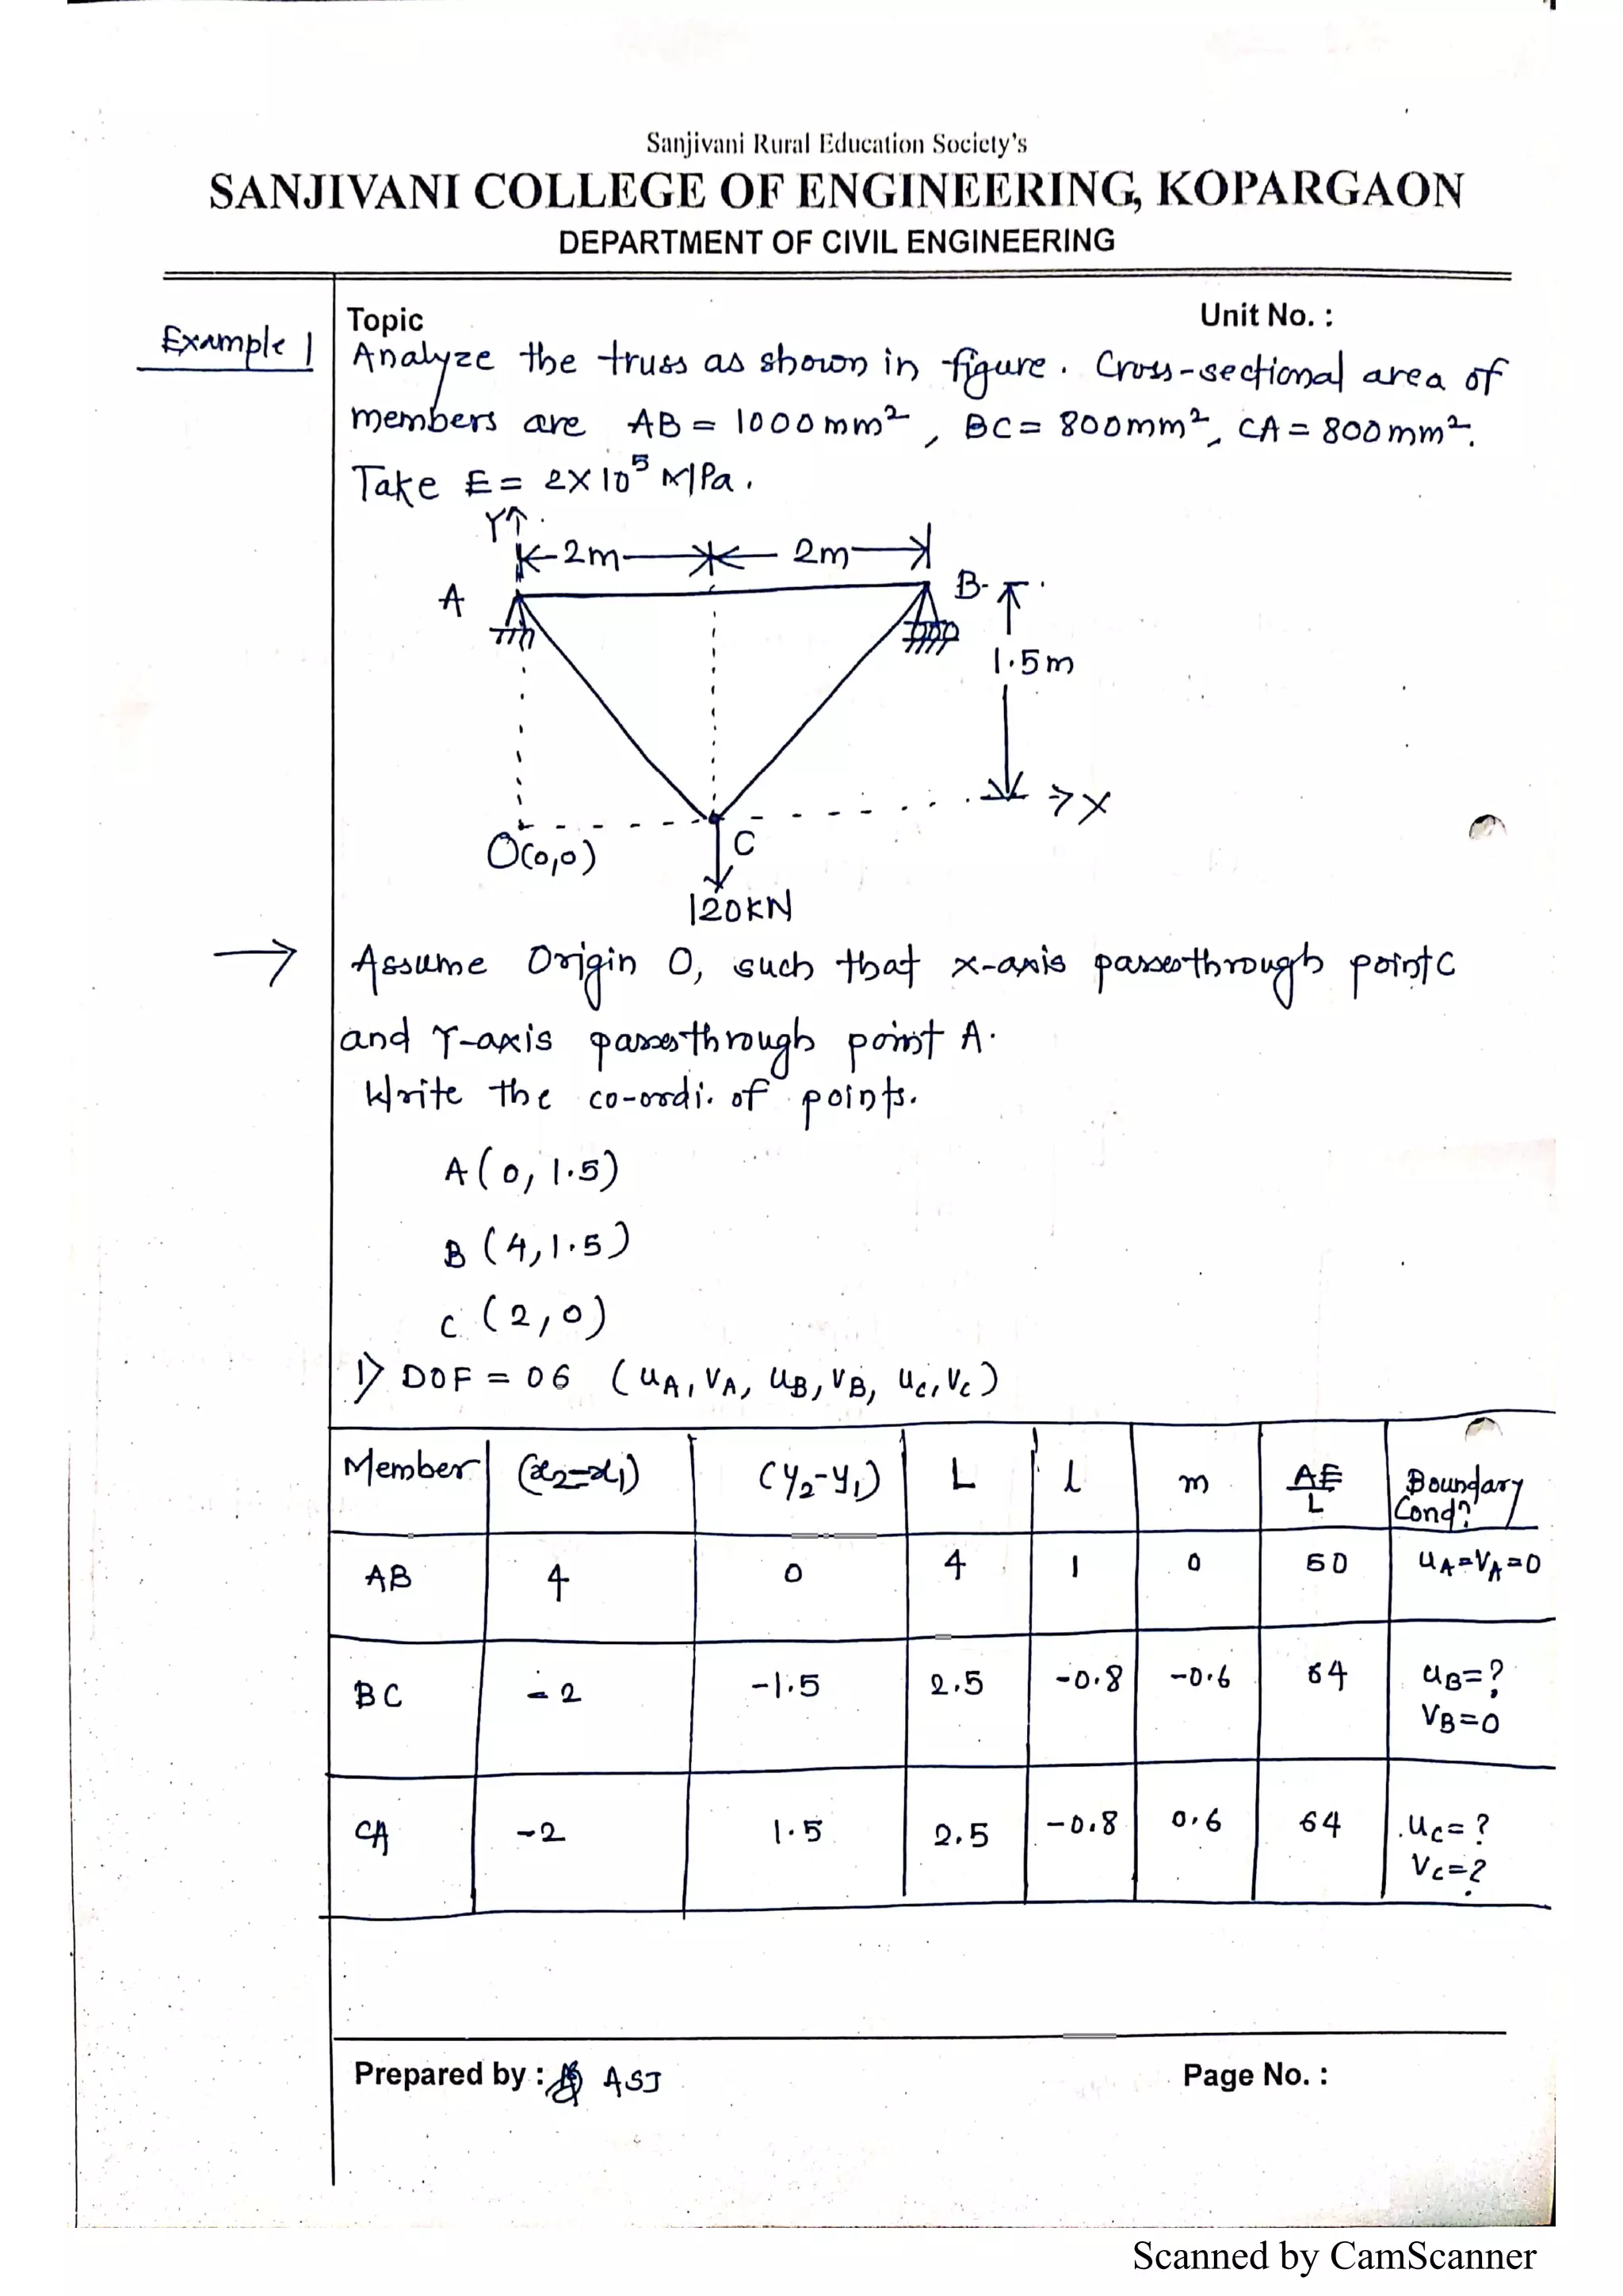 Sanjivani Rural Education Society's
SANJIVANI COLLEGE OF ENGINEERING, KOPARGAON
DEPARTMENT OF CIVIL ENGINEERING
Topic Unit No. :
Example 1
Analyze the truss as shown in figure. Cross-sectional area of
members are AB = 1000mm², BC = 800mm², CA = 800mm².
Take E = 2X10⁵ MPa.
Y
2m 2m
A B
1.5m
X
O(0,0) C
120KN
→ Assume Origin O, such that x-axis passes through point C
and Y-axis passes through point A.
Write the co-ordi. of points.
A(0, 1.5)
B (4,1.5)
C (2,0)
1) DOF = 06 (uA, VA, uB, VB, uC, VC)
Member (x₂-x₁) (y₂-y₁) L l m AE/L Boundary Condⁿ
AB 4 0 4 1 0 50 uA=VA=0
BC -2 -1.5 2.5 -0.8 -0.6 64 uB=? VB=0
CA -2 1.5 2.5 -0.8 0.6 64 uC=? VC=?
Prepared by : ASJ Page No. :
Scanned by CamScanner